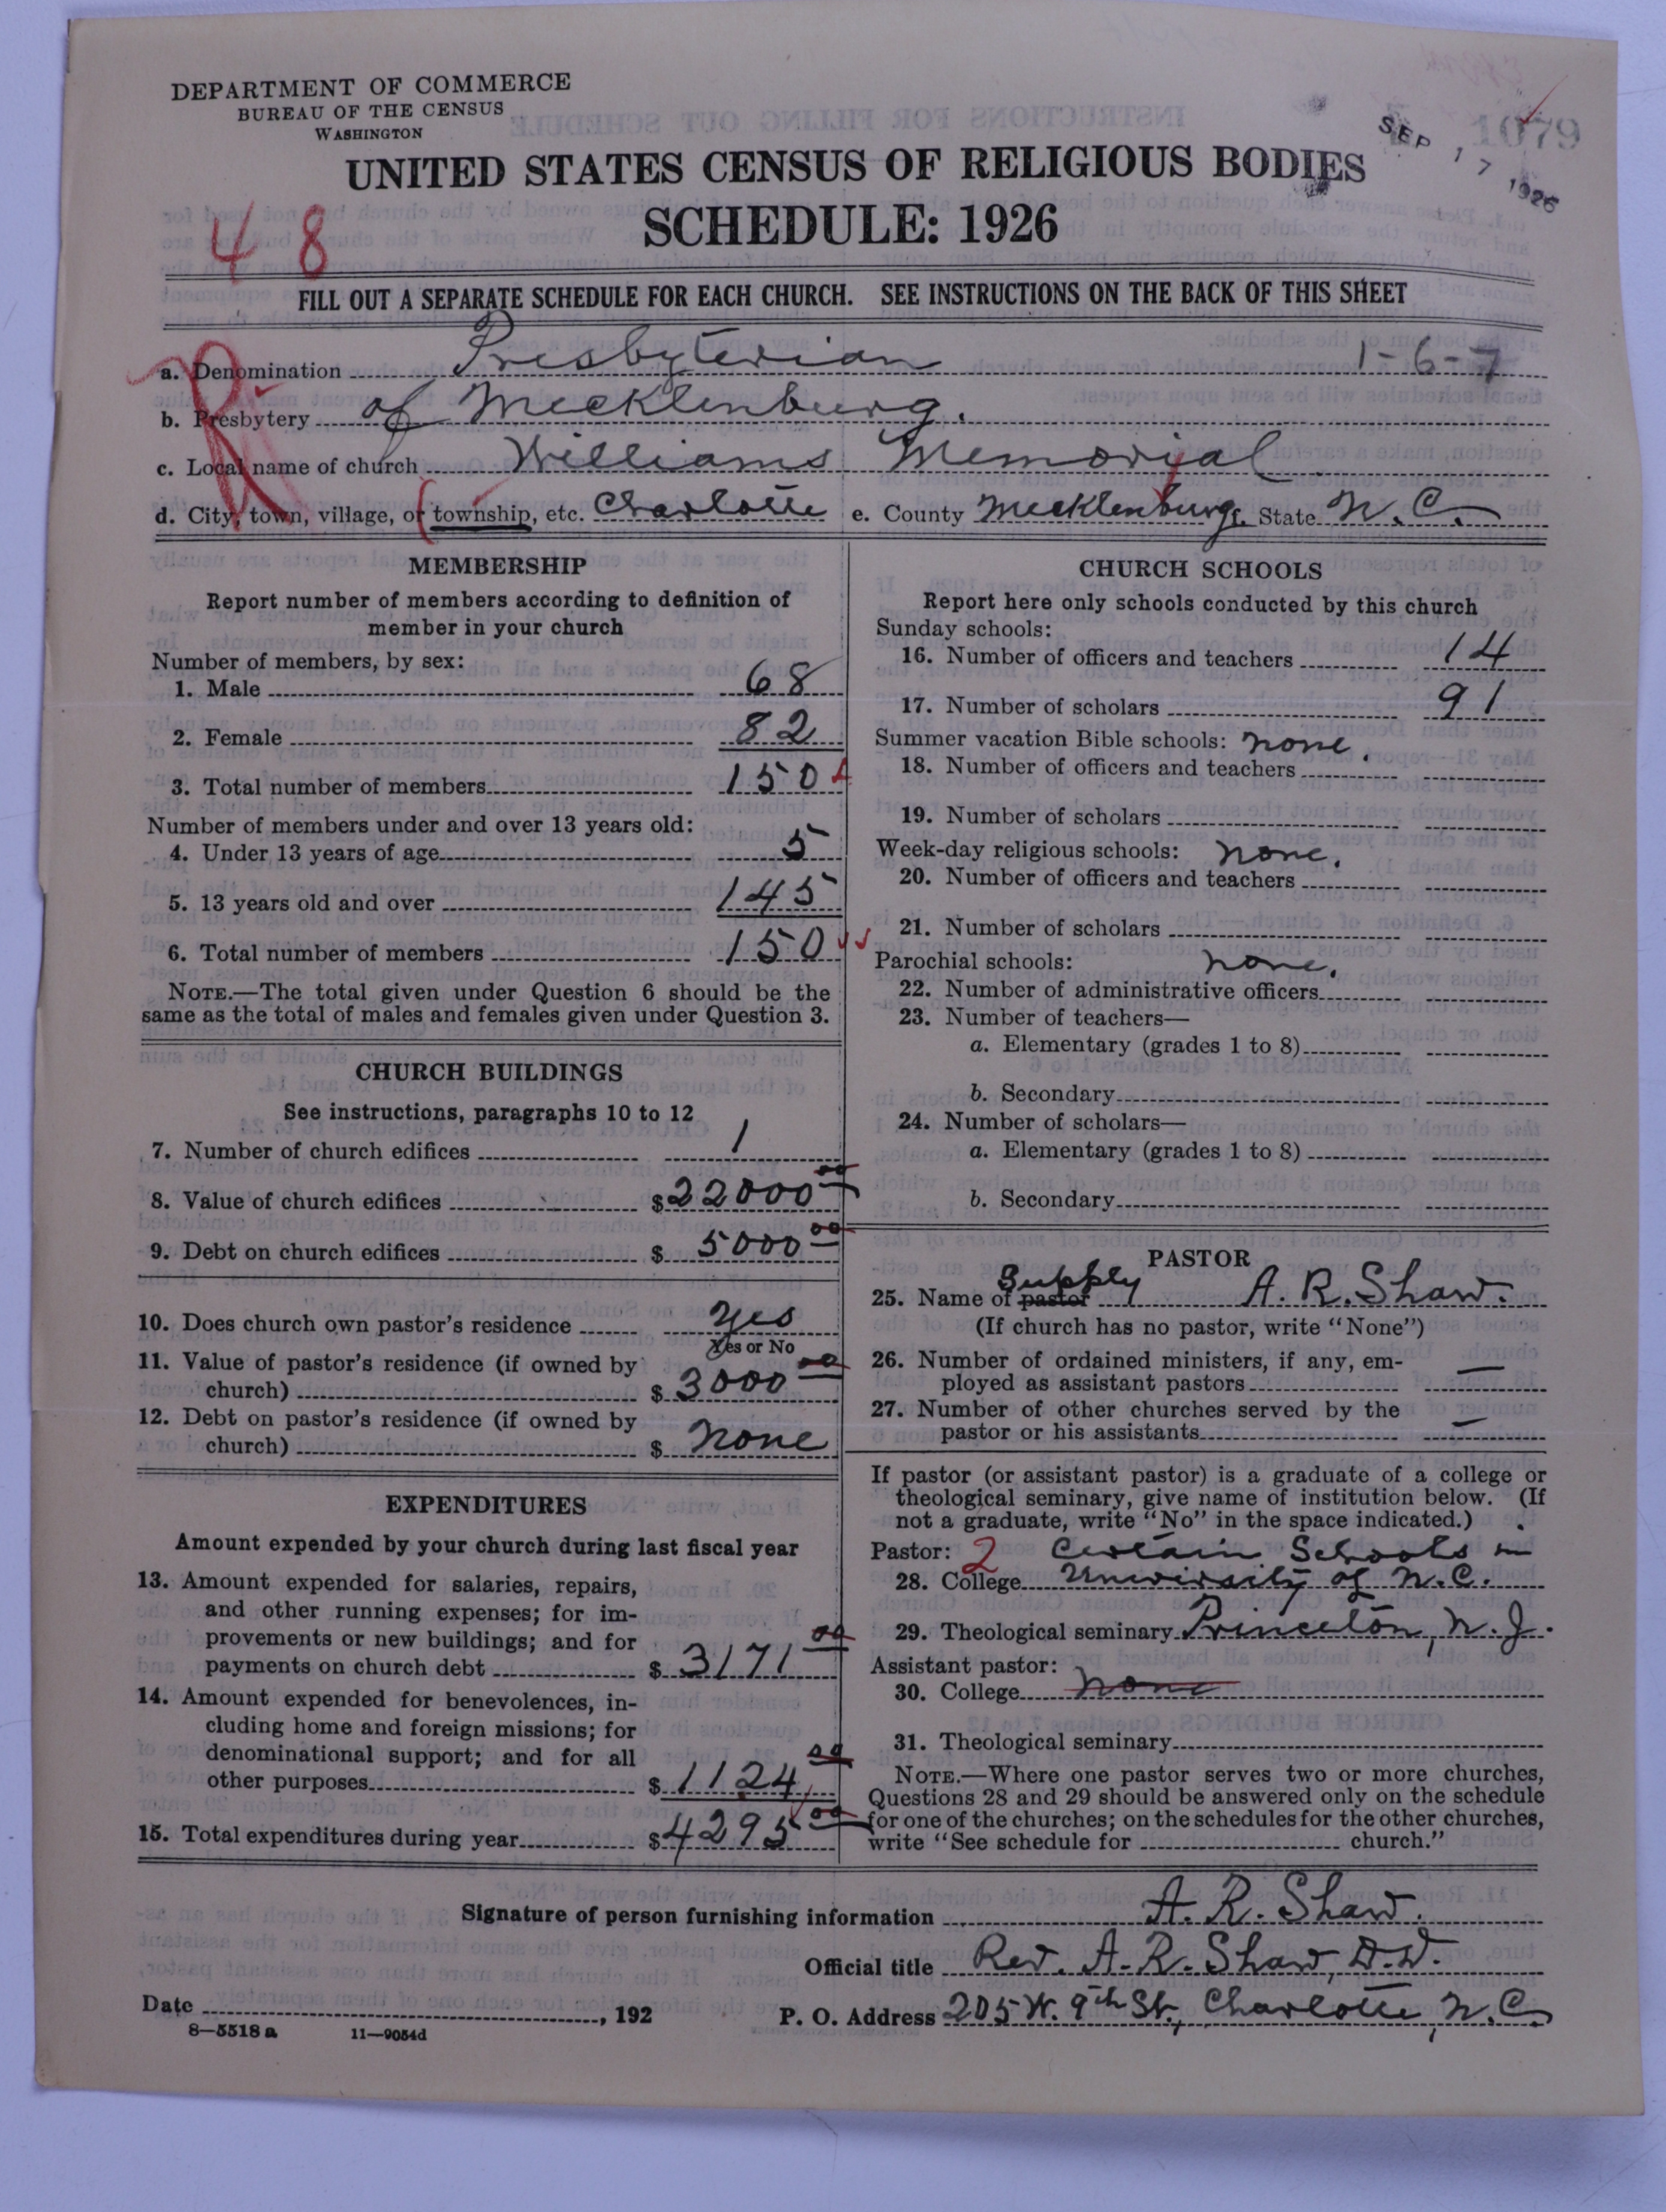 DEPARTMENT OF COMMERCE
BUREAU OF THE CENSUS
WASHINGTON
1079
SEP 17 1926
UNITED STATES CENSUS OF RELIGIOUS BODIES
SCHEDULE: 1926
48
FILL OUT A SEPARATE SCHEDULE FOR EACH CHURCH. SEE INSTRUCTIONS ON THE BACK OF THIS SHEET
a. Denomination Presbyterian 1-6-7
b. Presbytery of Mecklenburg.
c. Local name of church Williams Memorial
d. City, town, village, or township, etc. Charlotte e. County Mecklenburg f. State N.C.
MEMBERSHIP
Report number of members according to definition of
member in your church
Number of members, by sex:
1. Male 68
2. Female 82
3. Total number of members 150
Number of members under and over 13 years old:
4. Under 13 years of age 5
5. 13 years old and over 145
6. Total number of members 150
NOTE.—The total given under Question 6 should be the
same as the total of males and females given under Question 3.
CHURCH BUILDINGS
See instructions, paragraphs 10 to 12
7. Number of church edifices 1
8. Value of church edifices $22000 00
9. Debt on church edifices $ 5000 00
10. Does church own pastor's residence yes
Yes or No
11. Value of pastor's residence (if owned by
church) $ 3000 00
12. Debt on pastor's residence (if owned by
church) $ None
EXPENDITURES
Amount expended by your church during last fiscal year
13. Amount expended for salaries, repairs,
and other running expenses; for im-
provements or new buildings; and for
payments on church debt $ 3171 00
14. Amount expended for benevolences, in-
cluding home and foreign missions; for
denominational support; and for all
other purposes $ 1124 00
15. Total expenditures during year $4295 00
CHURCH SCHOOLS
Report here only schools conducted by this church
Sunday schools:
16. Number of officers and teachers 14
17. Number of scholars 91
Summer vacation Bible schools: none.
18. Number of officers and teachers
19. Number of scholars
Week-day religious schools: none.
20. Number of officers and teachers
21. Number of scholars
Parochial schools: none.
22. Number of administrative officers
23. Number of teachers—
a. Elementary (grades 1 to 8)
b. Secondary
24. Number of scholars—
a. Elementary (grades 1 to 8)
b. Secondary
PASTOR
Supply
25. Name of pastor A. R. Shaw.
(If church has no pastor, write "None")
26. Number of ordained ministers, if any, em-
ployed as assistant pastors —
27. Number of other churches served by the
pastor or his assistants —
If pastor (or assistant pastor) is a graduate of a college or
theological seminary, give name of institution below. (If
not a graduate, write "No" in the space indicated.)
Pastor: 2 Certain Schools in
28. College University of N.C.
29. Theological seminary Princeton, N.J.
Assistant pastor:
30. College None
31. Theological seminary
NOTE.—Where one pastor serves two or more churches,
Questions 28 and 29 should be answered only on the schedule
for one of the churches; on the schedules for the other churches,
write "See schedule for church."
Signature of person furnishing information A. R. Shaw.
Official title Rev. A. R. Shaw, D.D.
Date , 192 P. O. Address 205 W. 9th St., Charlotte, N.C.
8—5518 a 11—9054d